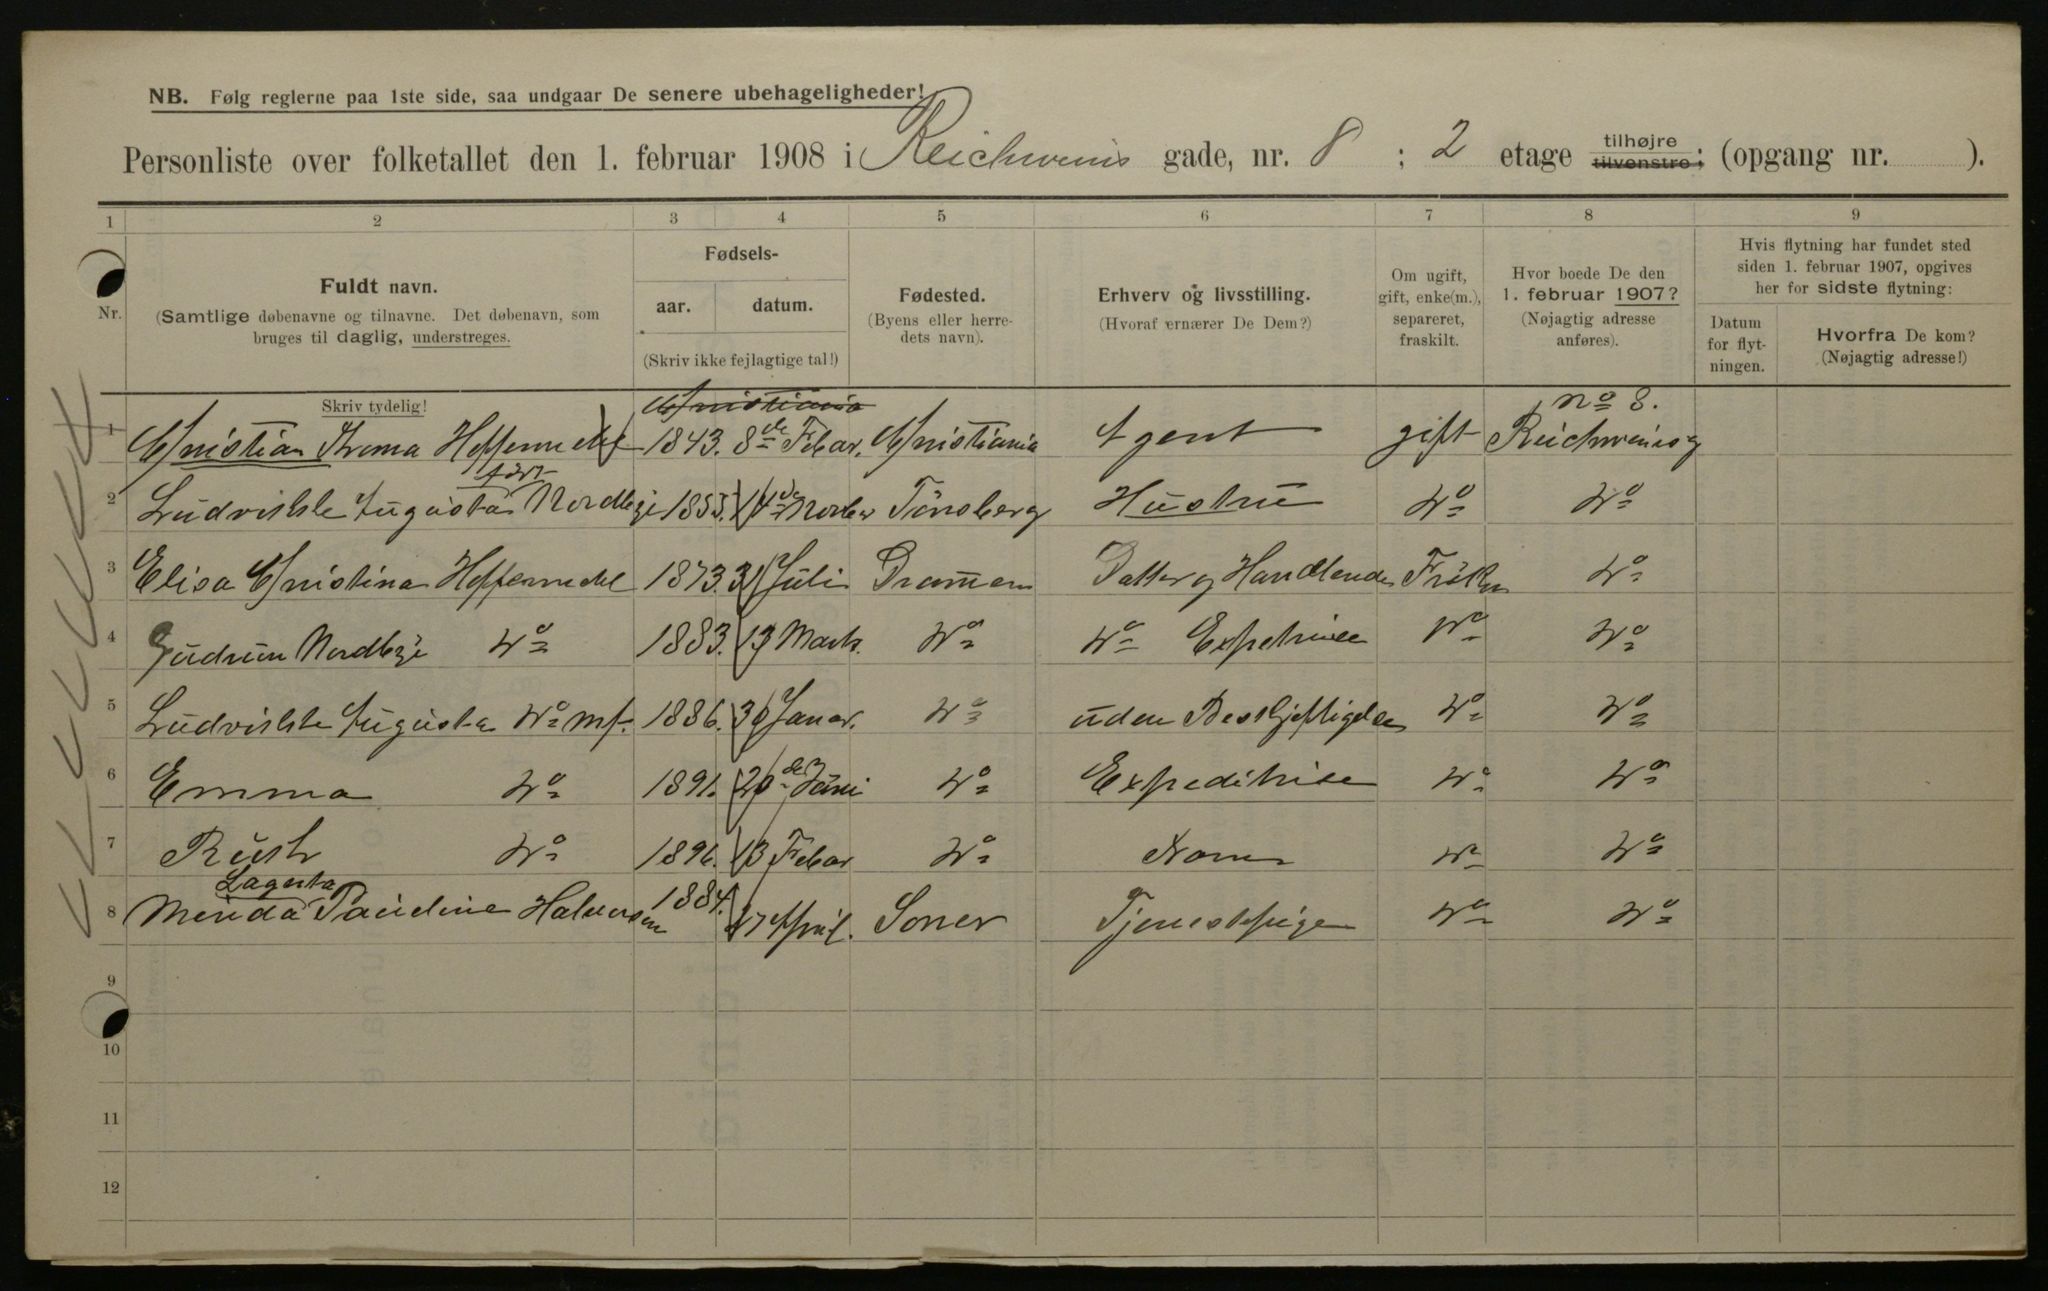 NB. Følg reglerne paa 1ste side, saa undgaar De senere ubehageligheder!
Personliste over folketallet den 1. februar 1908 i Reichweins gade, nr. 8 ; 2 etage tilhøjre tilvenstre; (opgang nr. ).
1 2 3 4 5 6 7 8 9
Nr.
Fuldt navn.
(Samtlige døbenavne og tilnavne. Det døbenavn, som
bruges til daglig, understreges.
Skriv tydelig!
Fødsels-
aar. datum.
(Skriv ikke fejlagtige tal!)
Fødested.
(Byens eller herre-
dets navn).
Erhverv og livsstilling.
(Hvoraf ernærer De Dem?)
Om ugift,
gift, enke(m.),
separeret,
fraskilt.
Hvor boede De den
1. februar 1907?
(Nøjagtig adresse
anføres).
Hvis flytning har fundet sted
siden 1. februar 1907, opgives
her for sidste flytning:
Datum
for flyt-
ningen.
Hvorfra De kom?
(Nøjagtig adresse!)
Christiania No 8.
1 Christian 1843. 8de Febar. Christiania Agent gift Reichweinsg
født
2 Augusta 1855. Novbr Tönsberg Hustru Do Do
3 Elisa Christina 1873. 31 Juli Drammen Datter og Handlende Frøken Do
4 Gudrun Do 1883. 13 Marts. Do Do Do Do
5 Augusta Do 1886. 30 Janar. Do uden Beskjeftigelse Do Do
6 Emma Do 1891. 20de Juni Do Expeditrise Do Do
7 Do 1896. 13 Febar Do Do Do
Lagerta
8 Minda Pauline Halvorsen 1884. April. Soner Tjenestepige Do Do
9
10
11
12